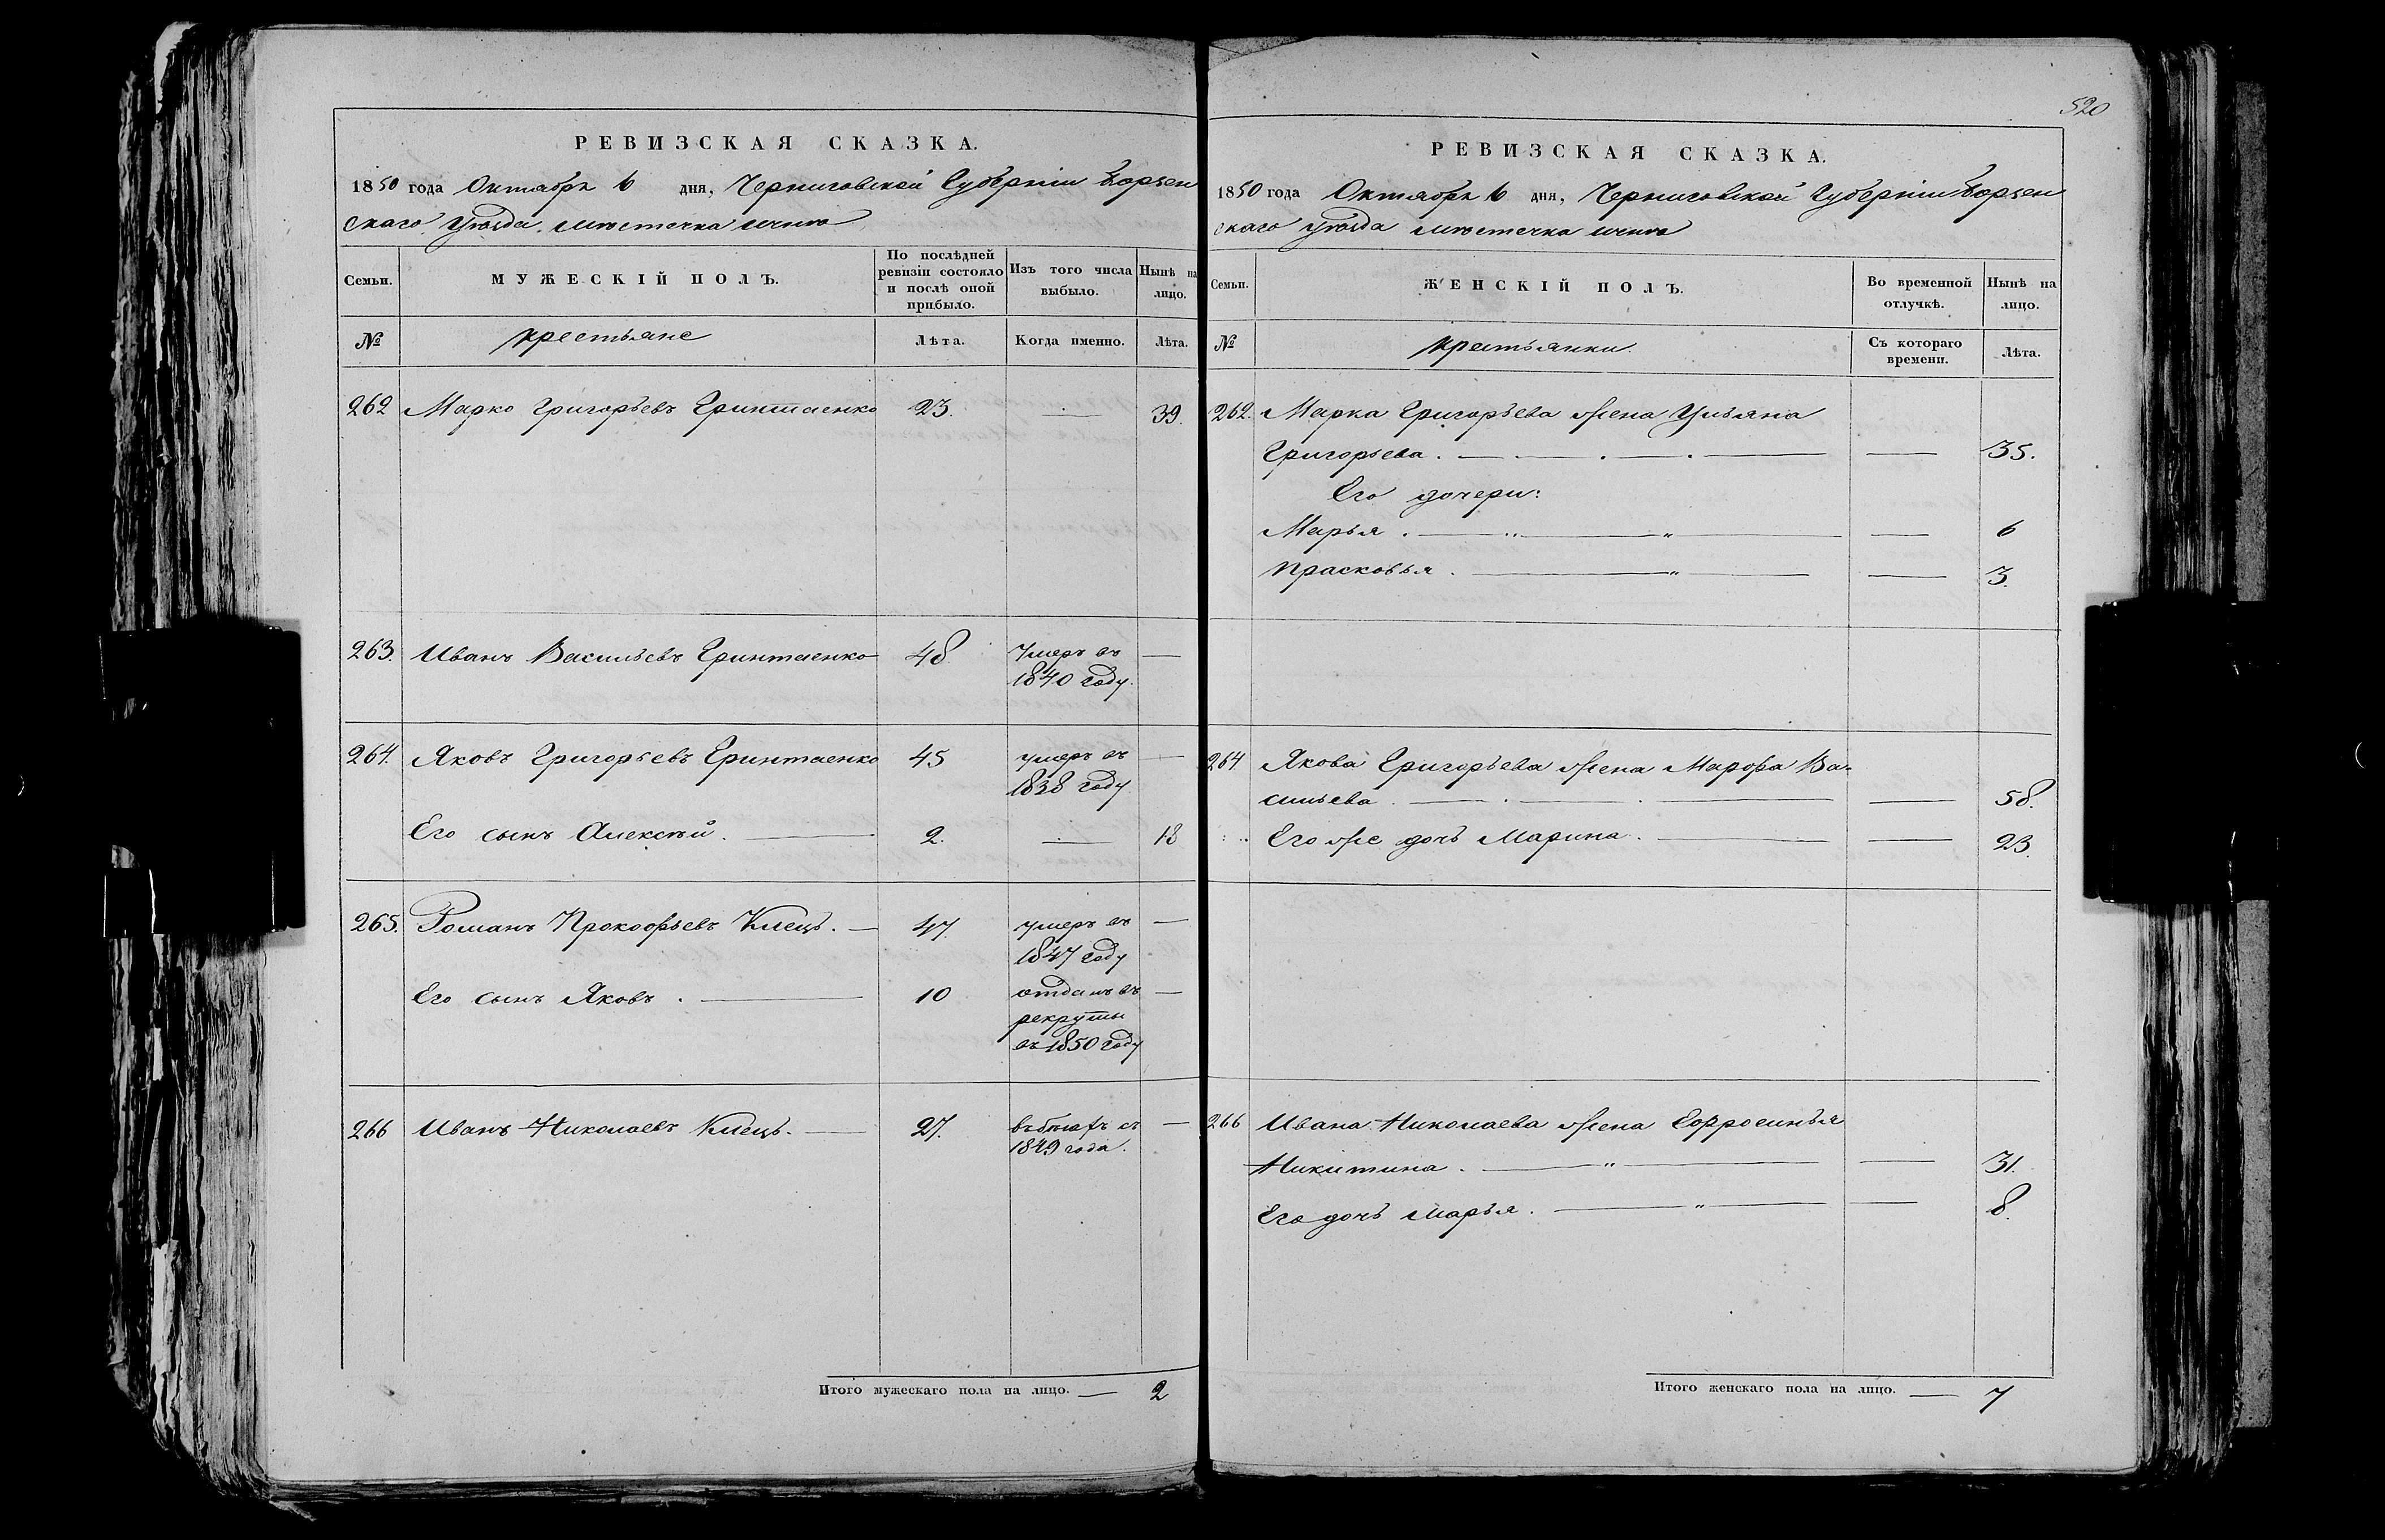 520
РЕВИЗСКАЯ СКАЗКА.
1850 года Октября 6 дня, Черниговской Губерніи Борзен
скаго уѣзда мѣстечка Ични
Семьи.
МУЖЕСКІЙ ПОЛЪ.
По послѣдней ревизіи состояло и послѣ оной прибыло.
Изъ того числа выбыло.
Нынѣ на лицо.
№
крестьяне
Лѣта.
Когда именно.
Лѣта.
262 Марко Григорьевъ Гринтаенко 23. — 39.
263. Иванъ Васильевъ Гринтаенко 48 Умеръ въ —
1840 году.
264. Яковъ Григорьевъ Гринтаенко 45 умеръ въ —
1838 году
Его сынъ Алексѣй. — 2. — 18
265. Романъ Прокофьевъ Клець. — 47. умеръ въ —
1847 году
Его сынъ Яковъ. — 10 отданъ въ —
рекруты
въ 1850 году
266 Иванъ Николаевъ Клець. — 27. въ бѣгахъ съ —
1849 года.
Итого мужескаго пола на лицо. — 2
РЕВИЗСКАЯ СКАЗКА.
1850 года Октября 6 дня, Черниговской Губерніи Борзен
скаго уѣзда мѣстечка Ични
Семьи.
ЖЕНСКІЙ ПОЛЪ.
Во временной отлучкѣ.
Нынѣ на лицо.
№
крестьянки.
Съ котораго времени.
Лѣта.
262. Марка Григорьева жена Ульяна
Григорьева. — — 35.
Его дочери:
Марья. — — 6
Прасковья. — — 3.
264 Якова Григорьева жена Марфа Ва-
сильева. — — 58.
Его же дочь Марина. — — 23.
266 Ивана Николаева жена Ефросинья
Никитина. — — 31.
Его дочь Марья. — — 8.
Итого женскаго пола на лицо. — 7